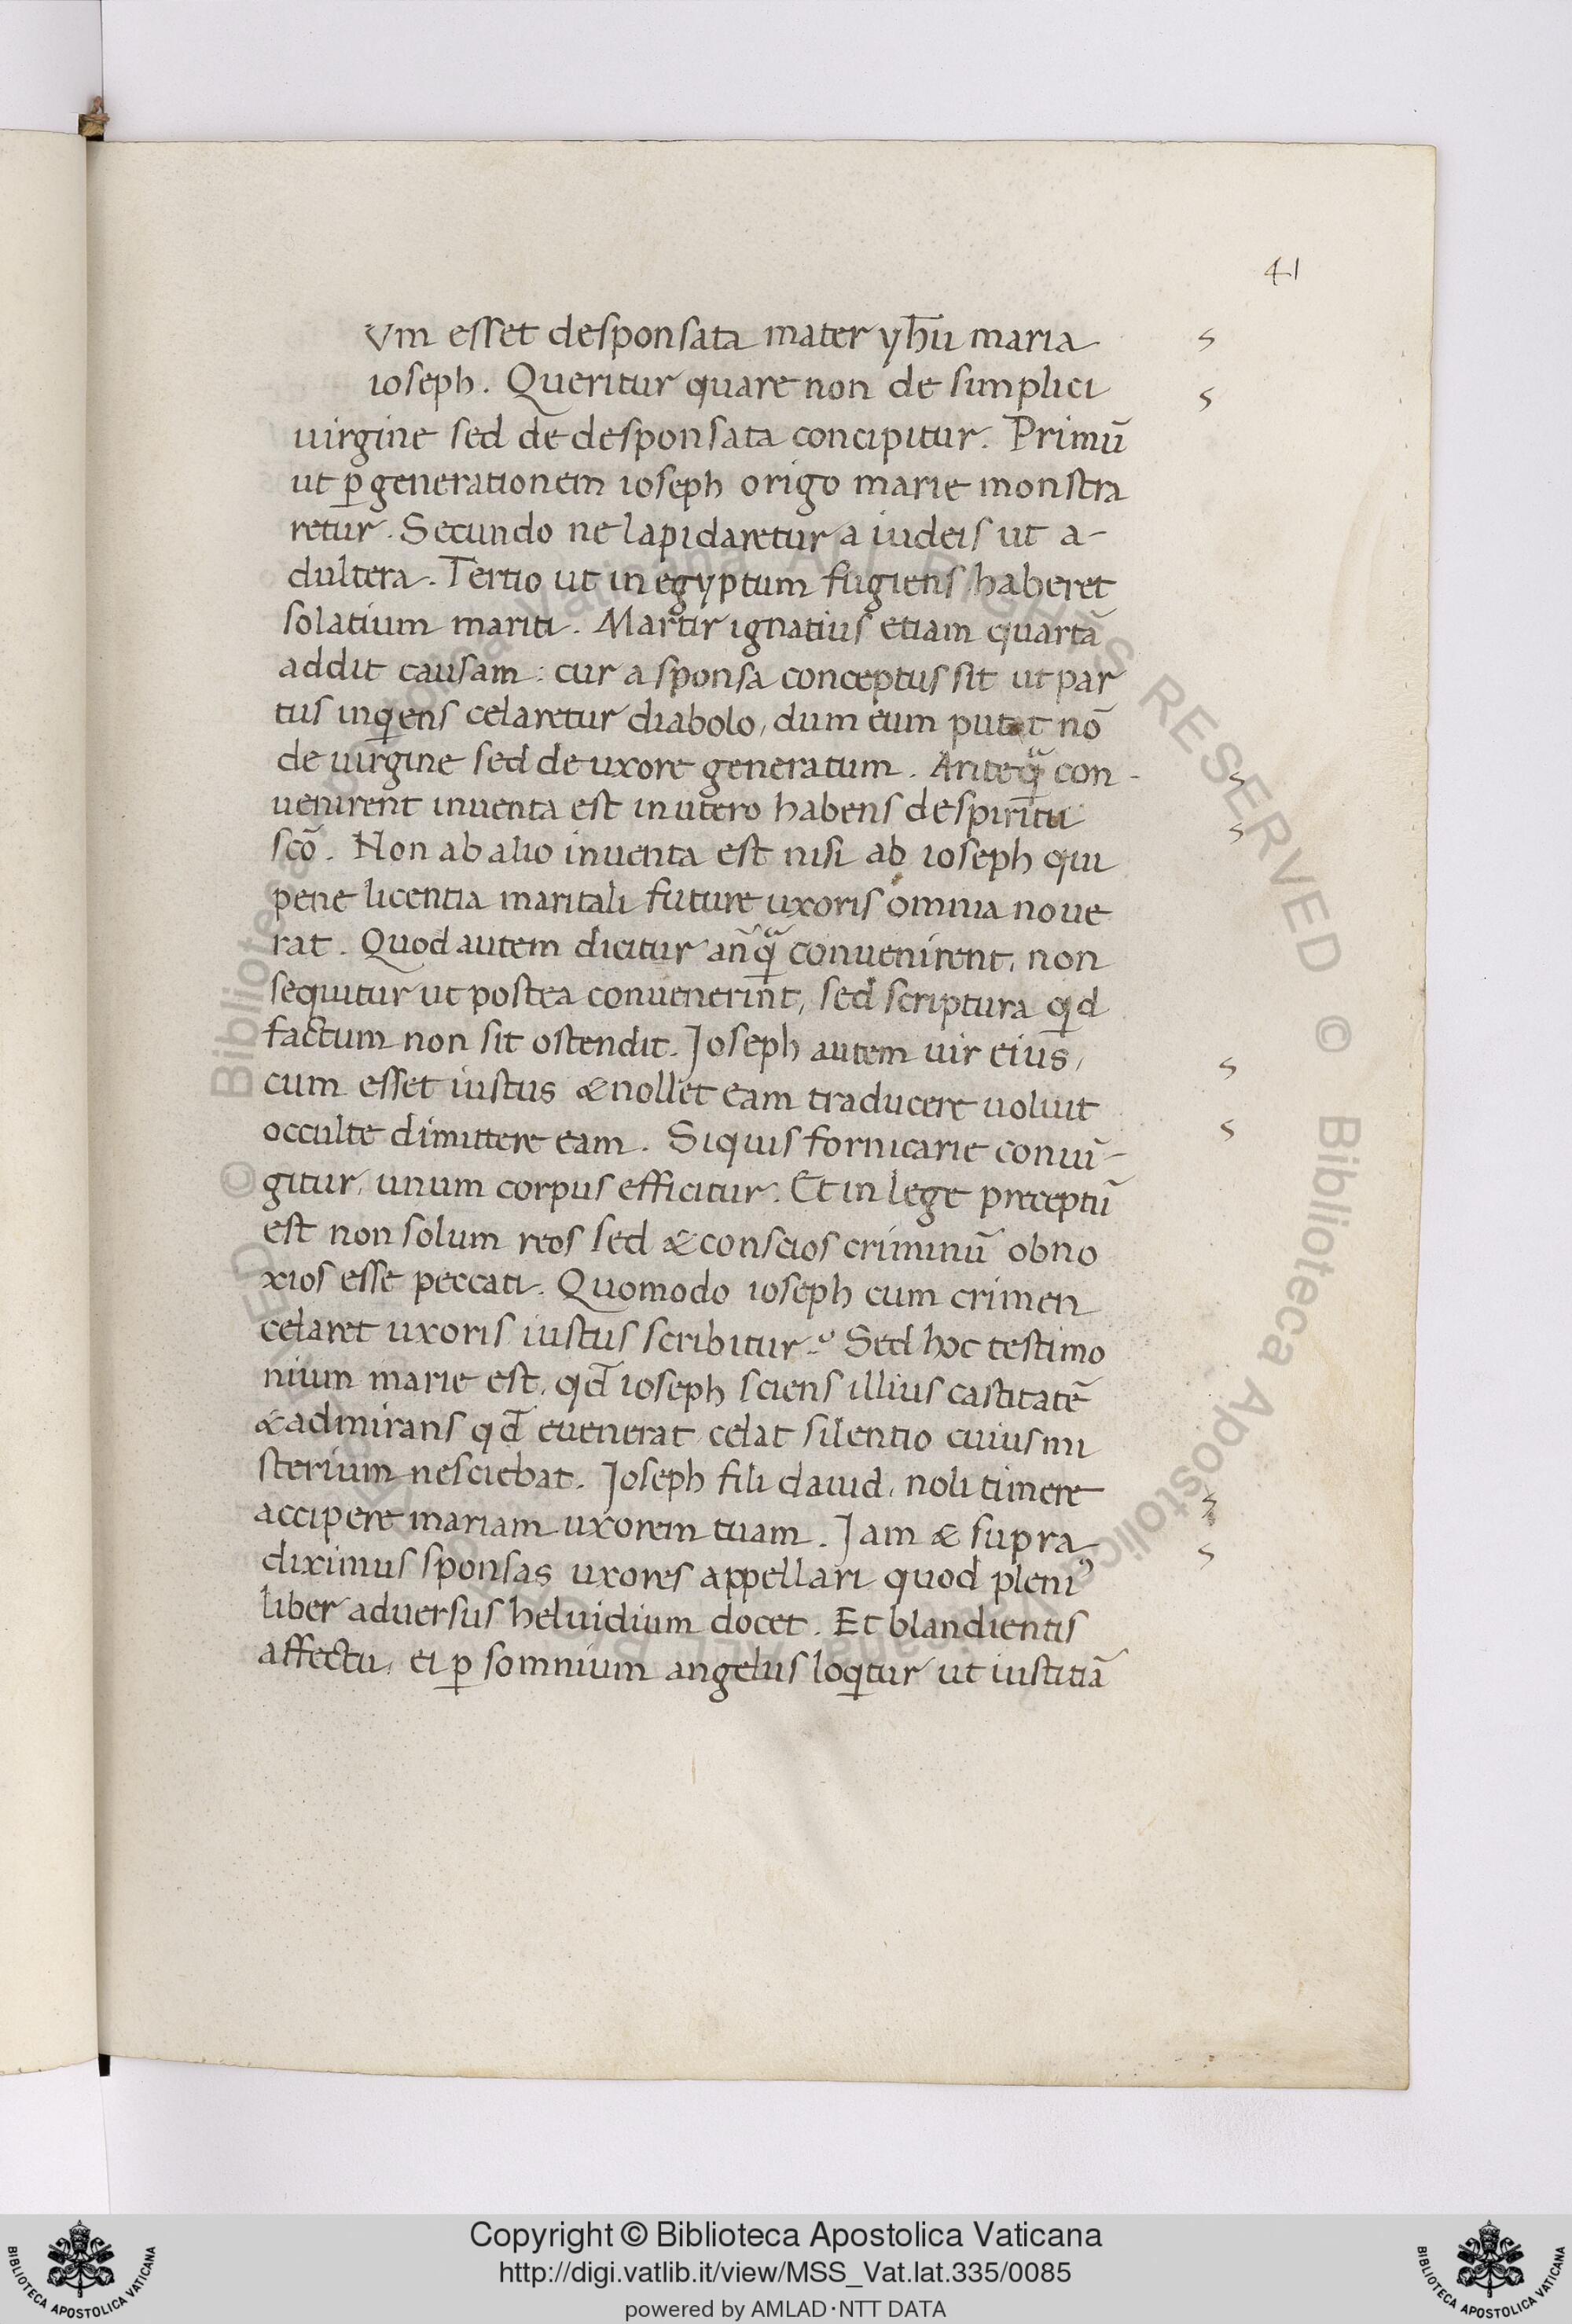 41
Vm esset desponsata mater yħu maria
ioseph. Queritur quare non de simplici
uirgine sed de desponsata concipitur. Primū
ut ꝑ generationem ioseph origo marie monstra
retur. Secundo ne lapidaretur a iudeis ut a-
dultera. Tertio ut in egyptum fugiens haberet
solatium mariti. Martir ignatius etiam quartā
addit causam: cur a sponsa conceptus sit ut par
tus inqͥens celaretur diabolo, dum eum putat nō
de uirgine sed de uxore generatum. Anteqͣ̃ con-
uenirent inuenta est in utero habens de spiritu
scō. Non ab alio inuenta est nisi ab ioseph qui
pene licentia maritali future uxoris omnia noue
rat. Quod autem dicitur an̄qͣ̃ conuenirent, non
sequitur ut postea conuenerint, sed scriptura qͥd
factum non sit ostendit. Joseph autem uir eius,
cum esset iustus & nollet eam traducere uoluit
occulte dimittere eam. Siquis fornicarie conuī-
gitur, unum corpus efficitur. Et in lege preceptū
est non solum reos sed & conscios criminū obno
xios esse peccati. Quomodo ioseph cum crimen
celaret uxoris iustus scribitur? Sed hoc testimo
nium marie est, qd̄ ioseph sciens illius castitatē
& admirans qd̄ euenerat celat silentio cuius mi
sterium nesciebat. Joseph fili dauid, noli timere
accipere mariam uxorem tuam. Jam & supra
diximus sponsas uxores appellari quod pleniꝰ
liber aduersus heluidium docet. Et blandientis
affectu, ei ꝑ somnium angelus loqͥtur ut iustitiā
Copyright © Biblioteca Apostolica Vaticana
http://digi.vatlib.it/view/MSS_Vat.lat.335/0085
powered by AMLAD·NTT DATA
BIBLIOTECA APOSTOLICA VATICANA
BIBLIOTECA APOSTOLICA VATICANA